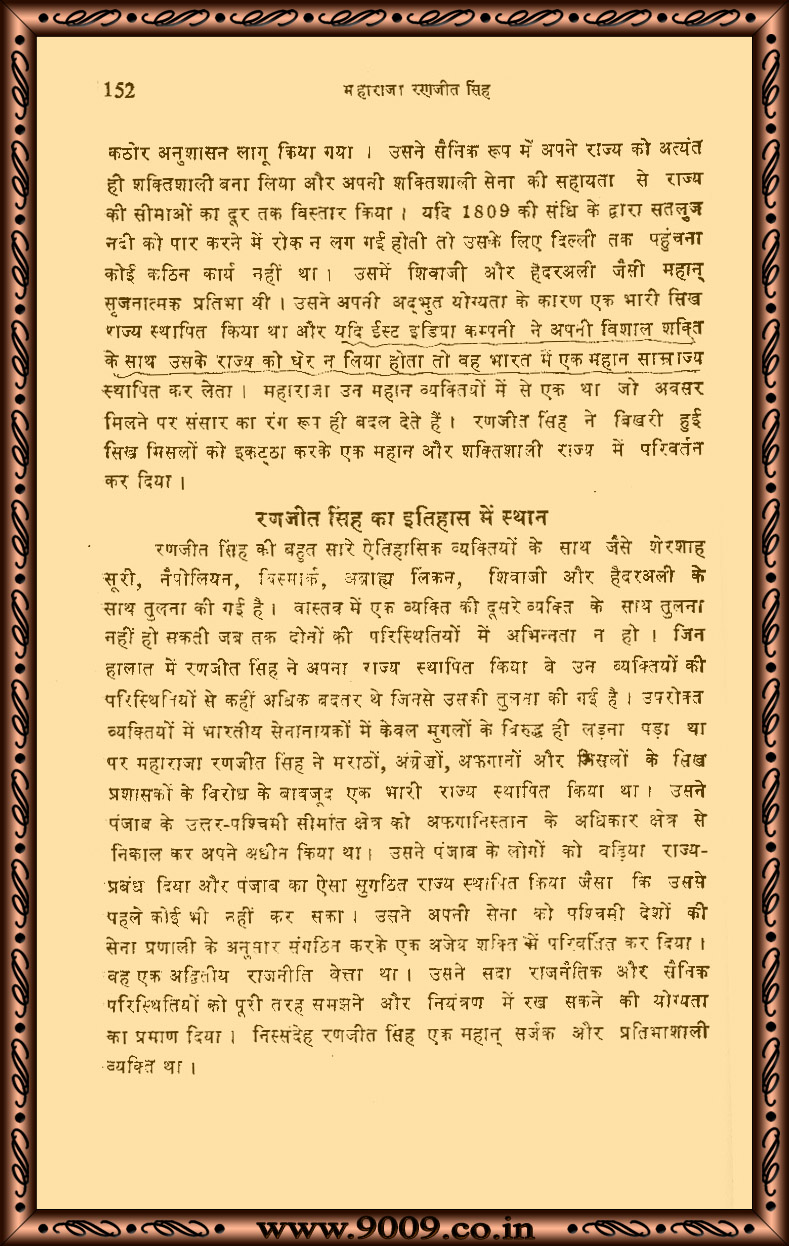 152
महाराजा रणजीत सिंह
कठोर अनुशासन लागू किया गया । उसने सैनिक रूप में अपने राज्य को अत्यंत
ही शक्तिशाली बना लिया और अपनी शक्तिशाली सेना की सहायता से राज्य
की सीमाओं का दूर तक विस्तार किया । यदि 1809 की संधि के द्वारा सतलुज
नदी को पार करने में रोक न लग गई होती तो उसके लिए दिल्ली तक पहुंचना
कोई कठिन कार्य नहीं था । उसमें शिवाजी और हैदरअली जैसी महान्
सृजनात्मक प्रतिभा थी । उसने अपनी अद्भुत योग्यता के कारण एक भारी सिख
राज्य स्थापित किया था और यदि ईस्ट इडिया कम्पनी ने अपनी विशाल शक्ति
के साथ उसके राज्य को घेर न लिया होता तो वह भारत में एक महान साम्राज्य
स्थापित कर लेता । महाराजा उन महान व्यक्तियों में से एक था जो अवसर
मिलने पर संसार का रंग रूप ही बदल देते हैं । रणजीत सिंह ने बिखरी हुई
सिख मिसलों को इकट्ठा करके एक महान और शक्तिशाली राज्य में परिवर्तन
कर दिया ।
रणजीत सिंह का इतिहास में स्थान
रणजीत सिंह की बहुत सारे ऐतिहासिक व्यक्तियों के साथ जैसे शेरशाह
सूरी, नैपोलियन, बिस्मार्क, अब्राह्म लिंकन, शिवाजी और हैदरअली के
साथ तुलना की गई है । वास्तव में एक व्यक्ति की दूसरे व्यक्ति के साथ तुलना
नहीं हो सकती जब तक दोनों की परिस्थितियों में अभिन्नता न हो । जिन
हालात में रणजीत सिंह ने अपना राज्य स्थापित किया वे उन व्यक्तियों की
परिस्थितियों से कहीं अधिक बदतर थे जिनसे उसकी तुलना की गई है । उपरोक्त
व्यक्तियों में भारतीय सेनानायकों में केवल मुगलों के विरुद्ध ही लड़ना पड़ा था
पर महाराजा रणजीत सिंह ने मराठों, अंग्रेजों, अफगानों और मिसलों के सिख
प्रशासकों के विरोध के बावजूद एक भारी राज्य स्थापित किया था । उसने
पंजाब के उत्तर-पश्चिमी सीमांत क्षेत्र को अफगानिस्तान के अधिकार क्षेत्र से
निकाल कर अपने अधीन किया था । उसने पंजाब के लोगों को बढ़िया राज्य-
प्रबंध दिया और पंजाब का ऐसा सुगठित राज्य स्थापित किया जैसा कि उससे
पहले कोई भी नहीं कर सका । उसने अपनी सेना को पश्चिमी देशों की
सेना प्रणाली के अनुसार संगठित करके एक अजेय शक्ति में परिवर्तित कर दिया ।
वह एक अद्वितीय राजनीति वेत्ता था । उसने सदा राजनैतिक और सैनिक
परिस्थितियों को पूरी तरह समझने और नियंत्रण में रख सकने की योग्यता
का प्रमाण दिया । निस्संदेह रणजीत सिंह एक महान् सर्जक और प्रतिभाशाली
व्यक्ति था ।
www.9009.co.in